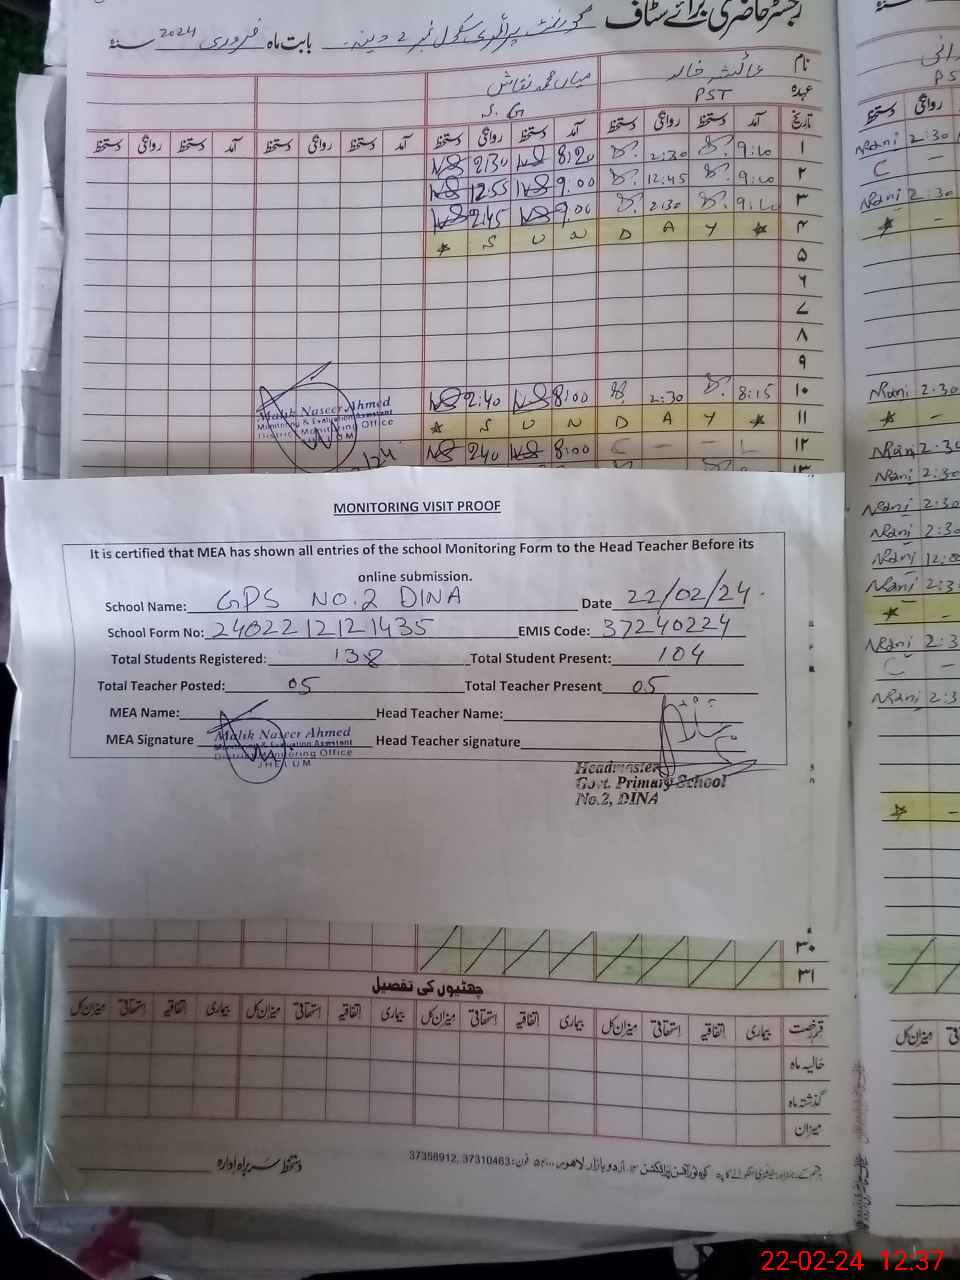 رجسٹر حاضری برائے سٹاف گورنمنٹ پرائمری سکول نمبر 2 دینہ بابت ماہ فروری 2024 سنہ
نام عائشہ خالد میاں محمد نقاش
عہدہ PST S.G
تاریخ آمد دستخط روانگی دستخط آمد دستخط روانگی دستخط آمد دستخط روانگی دستخط آمد دستخط روانگی دستخط
۱ 2:30 8:20 2:30
۲ 12:55 9:00 12:45
۳ 2:45 9:00 2:30
۴ * S U N D A Y *
۵
۶
۷
۸
۹
۱۰ 2:40 8:00 2:30 8:15
۱۱ * S U N D A Y *
۱۲ 240 8:00 C - - L
۱۳
Malik Naseer Ahmed
Monitoring & Evaluation Assistant
District Monitoring Office
دستخط روانگی
Nrani 2:30
C -
Nrani 2:30
* -
Nrani 2:30
* -
Nrani 2:30
Nrani 2:30
Nrani 2:30
Nrani 2:30
Nrani 12:00
Nrani 2:3
* -
Nrani 2:3
C -
Nrani 2:3
* -
MONITORING VISIT PROOF
It is certified that MEA has shown all entries of the school Monitoring Form to the Head Teacher Before its
online submission.
School Name: GPS NO.2 DINA Date 22/02/24
School Form No: 2402212121435 EMIS Code: 37240224
Total Students Registered: 138 Total Student Present: 104
Total Teacher Posted: 05 Total Teacher Present 05
MEA Name: Head Teacher Name:
MEA Signature Head Teacher signature
Malik Naseer Ahmed
Monitoring & Evaluation Assistant
District Monitoring Office
JHELUM
Headmaster
Govt. Primary School
No.2, DINA
۳۰
۳۱
چھٹیوں کی تفصیل
قسم رخصت بیماری اتفاقیہ استحقاقی میزان کل بیماری اتفاقیہ استحقاقی میزان کل بیماری اتفاقیہ استحقاقی میزان کل بیماری اتفاقیہ استحقاقی میزان کل
حالیہ ماہ
گذشتہ ماہ
میزان
دستخط سربراہ ادارہ
اردو بازار لاہور فون: 37310463, 37356912
22-02-24 12:37